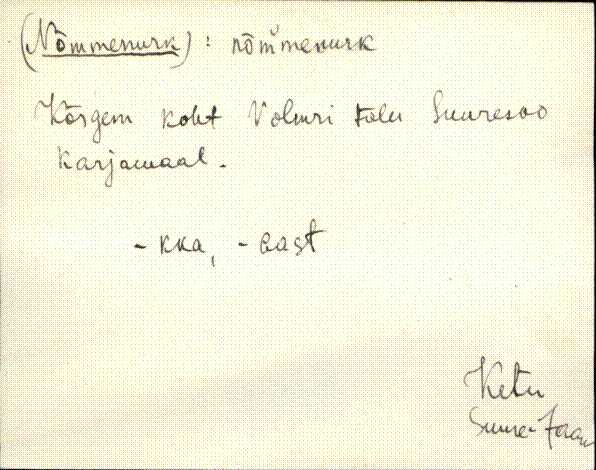 (Nõmmenurk) : nõm̀menurk
Kõrgem koht Volmri talu Suuresoo
karjamaal.
-kka, -east
Suure-Jaan